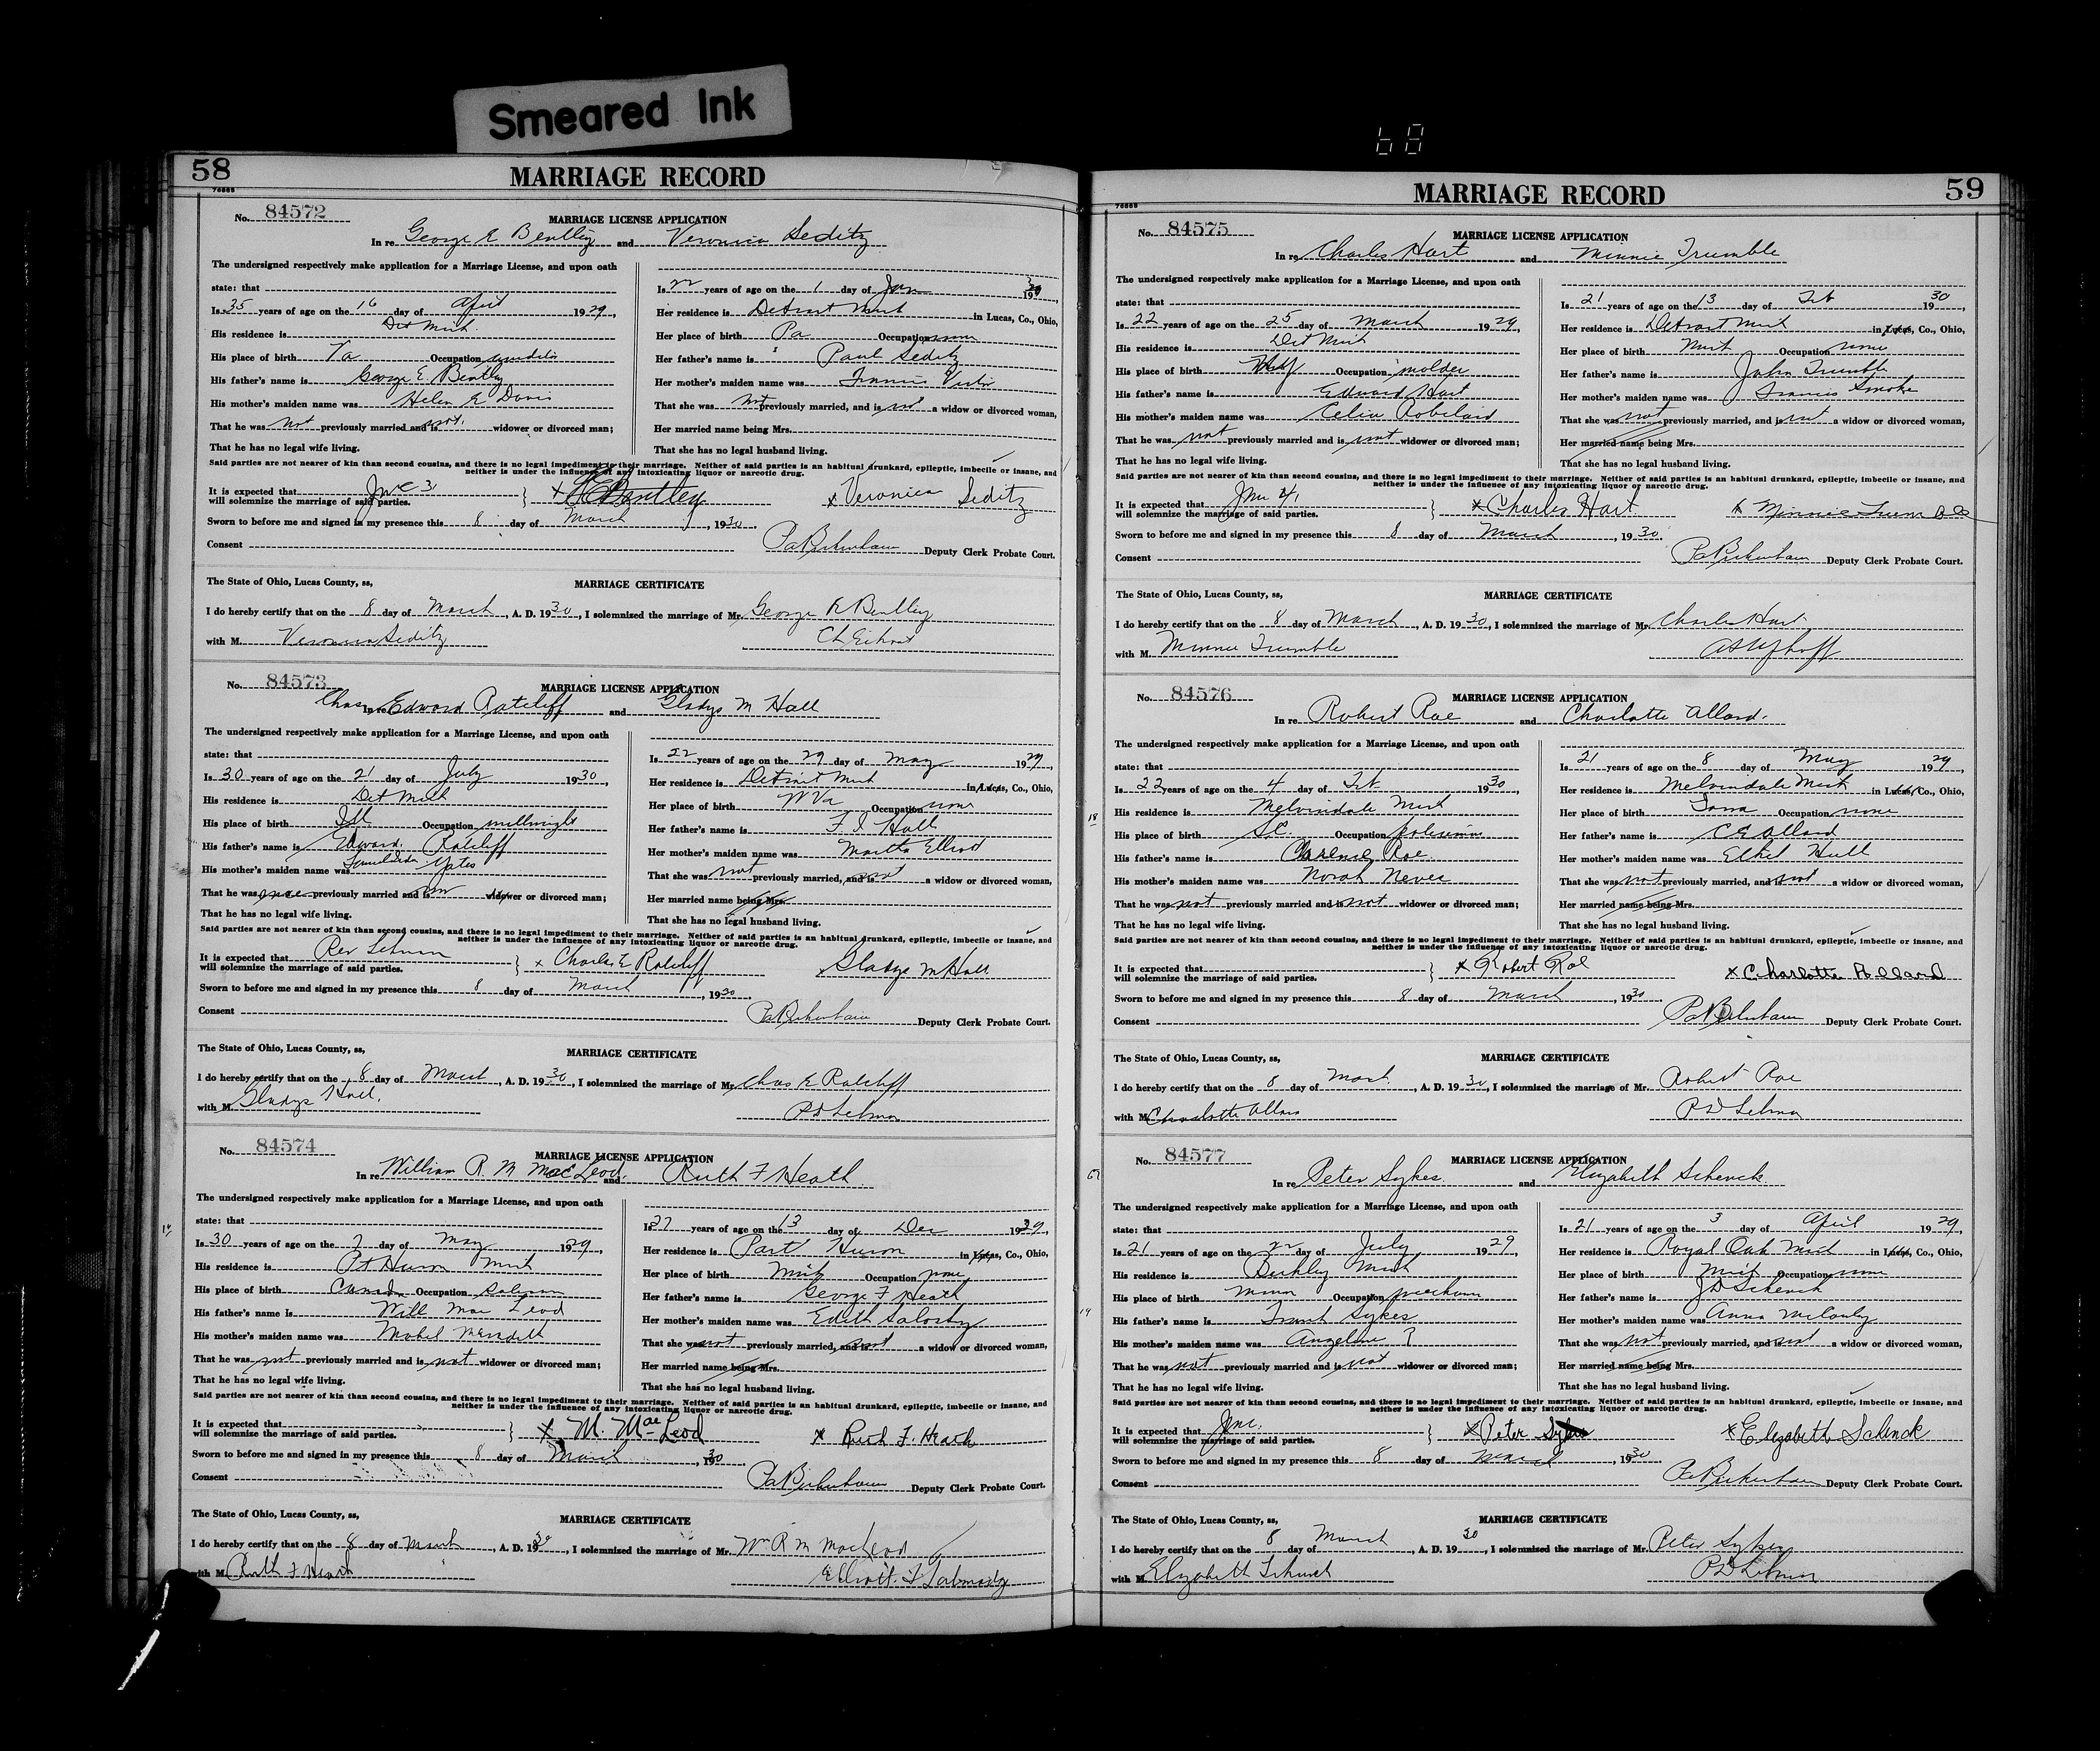 Smeared Ink
68
58
MARRIAGE RECORD
76885
No. 84572
MARRIAGE LICENSE APPLICATION
In re George E Bentley and Veronica Seditz
The undersigned respectively make application for a Marriage License, and upon oath
state: that
Is 35 years of age on the 16 day of April 1929,
His residence is Det Mich.
His place of birth Va Occupation
His father's name is George E Bentley
His mother's maiden name was Helen E Davis
That he was not previously married and is not widower or divorced man;
That he has no legal wife living.
Is 22 years of age on the 1 day of Jan 1930,
Her residence is Detroit Mich in Lucas, Co., Ohio,
Her place of birth Pa Occupation none
Her father's name is Paul Seditz
Her mother's maiden name was Francis
That she was not previously married, and is not a widow or divorced woman,
Her married name being Mrs.
That she has no legal husband living.
Said parties are not nearer of kin than second cousins, and there is no legal impediment to their marriage. Neither of said parties is an habitual drunkard, epileptic, imbecile or insane, and
neither is under the influence of any intoxicating liquor or narcotic drug.
It is expected that
will solemnize the marriage of said parties. } x G E Bentley x Veronica Seditz
Sworn to before me and signed in my presence this 8 day of March, 1930.
Consent Deputy Clerk Probate Court.
The State of Ohio, Lucas County, ss, MARRIAGE CERTIFICATE
I do hereby certify that on the 8 day of March, A. D. 1930, I solemnized the marriage of Mr. George E Bentley
with M. Veronica Seditz
No. 84573
MARRIAGE LICENSE APPLICATION
In re Chas Edward Ratcliff and Gladys M Hall
The undersigned respectively make application for a Marriage License, and upon oath
state: that
Is 30 years of age on the 21 day of July 1930,
His residence is Det Mich
His place of birth Ill Occupation millwright
His father's name is Edward Ratcliff
His mother's maiden name was Yates
That he was once previously married and is widower or divorced man;
That he has no legal wife living.
Is 22 years of age on the 29 day of May 1929,
Her residence is Detroit Mich in Lucas, Co., Ohio,
Her place of birth W Va Occupation none
Her father's name is F I Hall
Her mother's maiden name was Martha Elliod
That she was not previously married, and is not a widow or divorced woman,
Her married name being Mrs.
That she has no legal husband living.
Said parties are not nearer of kin than second cousins, and there is no legal impediment to their marriage. Neither of said parties is an habitual drunkard, epileptic, imbecile or insane, and
neither is under the influence of any intoxicating liquor or narcotic drug.
It is expected that Rev Lehman
will solemnize the marriage of said parties. } x Charles E Ratcliff x Gladys M Hall
Sworn to before me and signed in my presence this 8 day of March, 1930.
Consent Deputy Clerk Probate Court.
The State of Ohio, Lucas County, ss, MARRIAGE CERTIFICATE
I do hereby certify that on the 8 day of March, A. D. 1930, I solemnized the marriage of Mr. Chas E Ratcliff
with M. Gladys Hall.
No. 84574
MARRIAGE LICENSE APPLICATION
In re William R. M MacLeod. and Ruth F Heath
The undersigned respectively make application for a Marriage License, and upon oath
state: that
Is 30 years of age on the 2 day of May 1929,
His residence is Pt Huron Mich
His place of birth Canada Occupation
His father's name is Will Mac Leod
His mother's maiden name was Mabel Meredith
That he was not previously married and is not widower or divorced man;
That he has no legal wife living.
Is 27 years of age on the 13 day of Dec 1929,
Her residence is Port Huron in Lucas, Co., Ohio,
Her place of birth Mich Occupation none
Her father's name is George F Heath
Her mother's maiden name was Edith
That she was not previously married, and is not a widow or divorced woman,
Her married name being Mrs.
That she has no legal husband living.
Said parties are not nearer of kin than second cousins, and there is no legal impediment to their marriage. Neither of said parties is an habitual drunkard, epileptic, imbecile or insane, and
neither is under the influence of any intoxicating liquor or narcotic drug.
It is expected that
will solemnize the marriage of said parties. } x M. MacLeod x Ruth F. Heath
Sworn to before me and signed in my presence this 8 day of March, 1930.
Consent Deputy Clerk Probate Court.
The State of Ohio, Lucas County, ss, MARRIAGE CERTIFICATE
I do hereby certify that on the 8 day of March, A. D. 1930, I solemnized the marriage of Mr. Wm R M MacLeod
with M. Ruth F Heath
59
MARRIAGE RECORD
76885
No. 84575
MARRIAGE LICENSE APPLICATION
In re Charles Hart and Minnie Trumble
The undersigned respectively make application for a Marriage License, and upon oath
state: that
Is 22 years of age on the 25 day of March 1929,
His residence is Det Mich
His place of birth Occupation molder
His father's name is Edward Hart
His mother's maiden name was Celia Robilard
That he was not previously married and is not widower or divorced man;
That he has no legal wife living.
Is 21 years of age on the 13 day of Feb 1930,
Her residence is Detroit Mich in Lucas, Co., Ohio,
Her place of birth Mich Occupation none
Her father's name is John Trumble
Her mother's maiden name was Francis Smoke
That she was not previously married, and is not a widow or divorced woman,
Her married name being Mrs.
That she has no legal husband living.
Said parties are not nearer of kin than second cousins, and there is no legal impediment to their marriage. Neither of said parties is an habitual drunkard, epileptic, imbecile or insane, and
neither is under the influence of any intoxicating liquor or narcotic drug.
It is expected that
will solemnize the marriage of said parties. } x Charles Hart x Minnie
Sworn to before me and signed in my presence this 8 day of March, 1930.
Consent Deputy Clerk Probate Court.
The State of Ohio, Lucas County, ss, MARRIAGE CERTIFICATE
I do hereby certify that on the 8 day of March, A. D. 1930, I solemnized the marriage of Mr. Charles Hart
with M. Minnie Trumble
No. 84576
MARRIAGE LICENSE APPLICATION
In re Robert Roe and Charlotte Allard.
The undersigned respectively make application for a Marriage License, and upon oath
state: that
Is 22 years of age on the 4 day of Feb 1930
His residence is Melvindale Mich
18
His place of birth S.C. Occupation policeman
His father's name is Clarence Roe.
His mother's maiden name was Norah Neves
That he was not previously married and is not widower or divorced man;
That he has no legal wife living.
Is 21 years of age on the 8 day of May 1929,
Her residence is Melvindale Mich in Lucas, Co., Ohio,
Her place of birth Iowa Occupation none
Her father's name is C E Allard
Her mother's maiden name was Ethel Hull
That she was not previously married, and is not a widow or divorced woman,
Her married name being Mrs.
That she has no legal husband living.
Said parties are not nearer of kin than second cousins, and there is no legal impediment to their marriage. Neither of said parties is an habitual drunkard, epileptic, imbecile or insane, and
neither is under the influence of any intoxicating liquor or narcotic drug.
It is expected that
will solemnize the marriage of said parties. } x Robert Roe x Charlotte Allard
Sworn to before me and signed in my presence this 8 day of March, 1930.
Consent Deputy Clerk Probate Court.
The State of Ohio, Lucas County, ss, MARRIAGE CERTIFICATE
I do hereby certify that on the 8 day of March, A. D. 1930, I solemnized the marriage of Mr. Robert Roe
with M. Charlotte Allard
No. 84577
MARRIAGE LICENSE APPLICATION
In re Peter Sykes. and Elizabeth Schenck.
The undersigned respectively make application for a Marriage License, and upon oath
state: that
Is 21 years of age on the 22 day of July 1929,
His residence is Berkley Mich
His place of birth Occupation
19
His father's name is Frank Sykes
His mother's maiden name was Angeline ?
That he was not previously married and is not widower or divorced man;
That he has no legal wife living.
Is 21 years of age on the 3 day of April 1929,
Her residence is Royal Oak Mich in Lucas, Co., Ohio,
Her place of birth Mich Occupation none
Her father's name is J D Schenck
Her mother's maiden name was Anna
That she was not previously married, and is not a widow or divorced woman,
Her married name being Mrs.
That she has no legal husband living.
Said parties are not nearer of kin than second cousins, and there is no legal impediment to their marriage. Neither of said parties is an habitual drunkard, epileptic, imbecile or insane, and
neither is under the influence of any intoxicating liquor or narcotic drug.
It is expected that
will solemnize the marriage of said parties. } x Peter Sykes x Elizabeth Schenck
Sworn to before me and signed in my presence this 8 day of March, 1930.
Consent Deputy Clerk Probate Court.
The State of Ohio, Lucas County, ss, MARRIAGE CERTIFICATE
I do hereby certify that on the 8 day of March, A. D. 1930, I solemnized the marriage of Mr. Peter Sykes
with M. Elizabeth Schenck